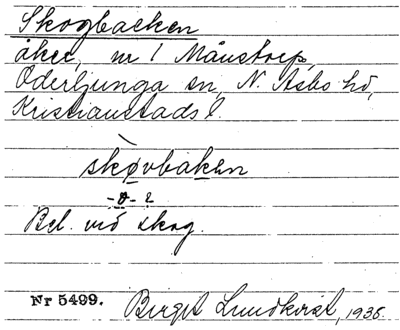 Skogbacken
åker, nr 1 Månstorp,
Oderljunga sn, N. Åsbo hd,
Kristianstads l.
skovbaken
-ø- 2
Bel. vid skog.
Nr 5499. Birgit Lundkvist, 1935.